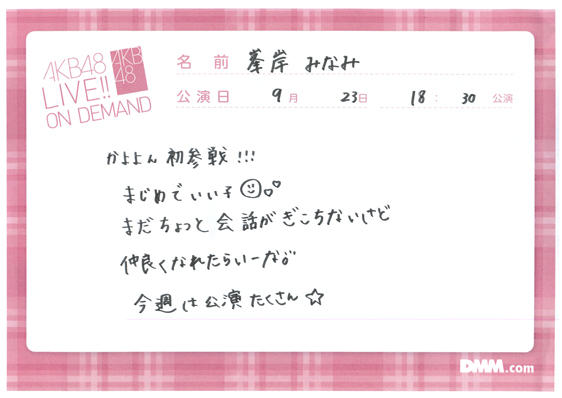 AKB48
LIVE!!
ON DEMAND
AKB
48
名前 峯岸 みなみ
公演日 9月 23日 18:30 公演
かよよん 初参戦!!!
まじめでいい子
まだちょっと会話がぎこちないけど
仲良くなれたらいーな。
今週は公演たくさん☆
DMM.com